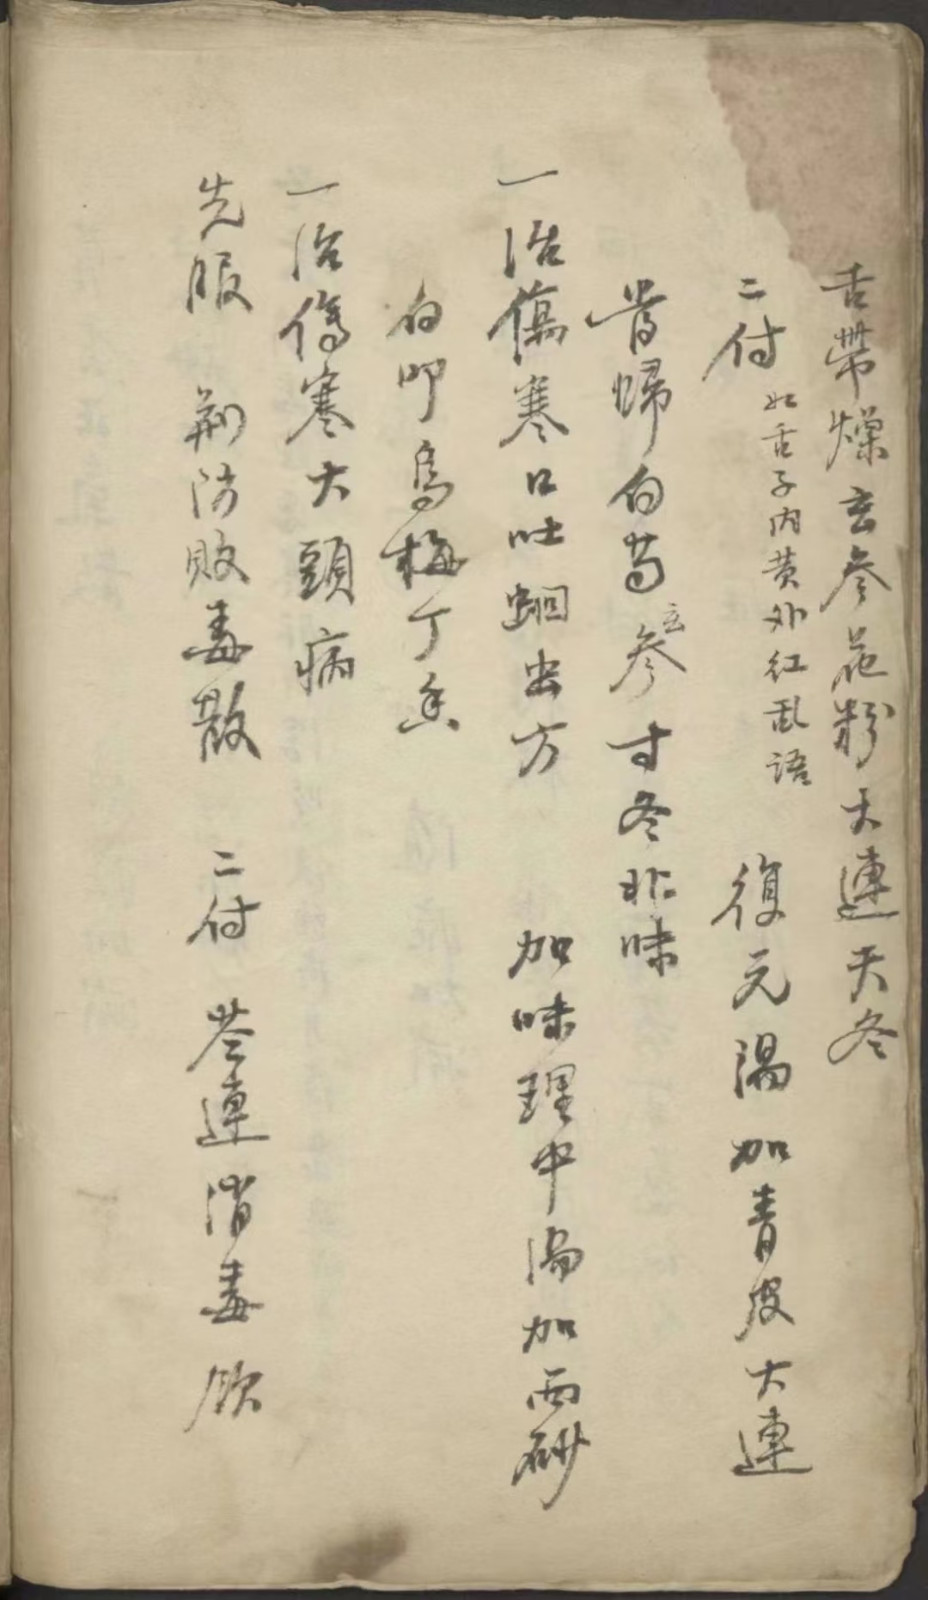 舌帶燥玄參花粉大連天冬
二付 如舌子内黄外紅乱語 復元湯加青皮大連
當歸白芍玄參寸冬北味
一治傷寒口吐蛔虫方 加味理中湯加西砂
白叩烏梅丁香
一治傷寒大頭病
先服 荆防敗毒散 二付 芩連消毒飲